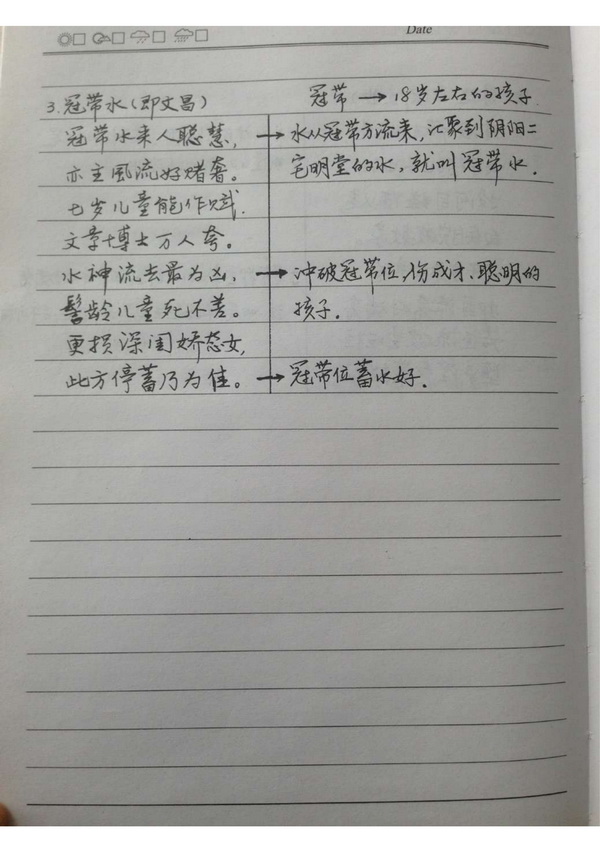 Date
3.冠带水(即文昌)
冠带 → 18岁左右的孩子
冠带水来人聪慧, → 水从冠带方流来,汇聚到阴阳二
亦主風流好赌奢。 宅明堂的水,就叫冠带水.
七岁儿童能作赋.
文章博士万人夸。
水神流去最为凶, → 冲破冠带位,伤成才、聪明的
髫龄儿童死不差。 孩子.
更损深闺娇态女,
此方停蓄乃为佳。 → 冠带位蓄水好.